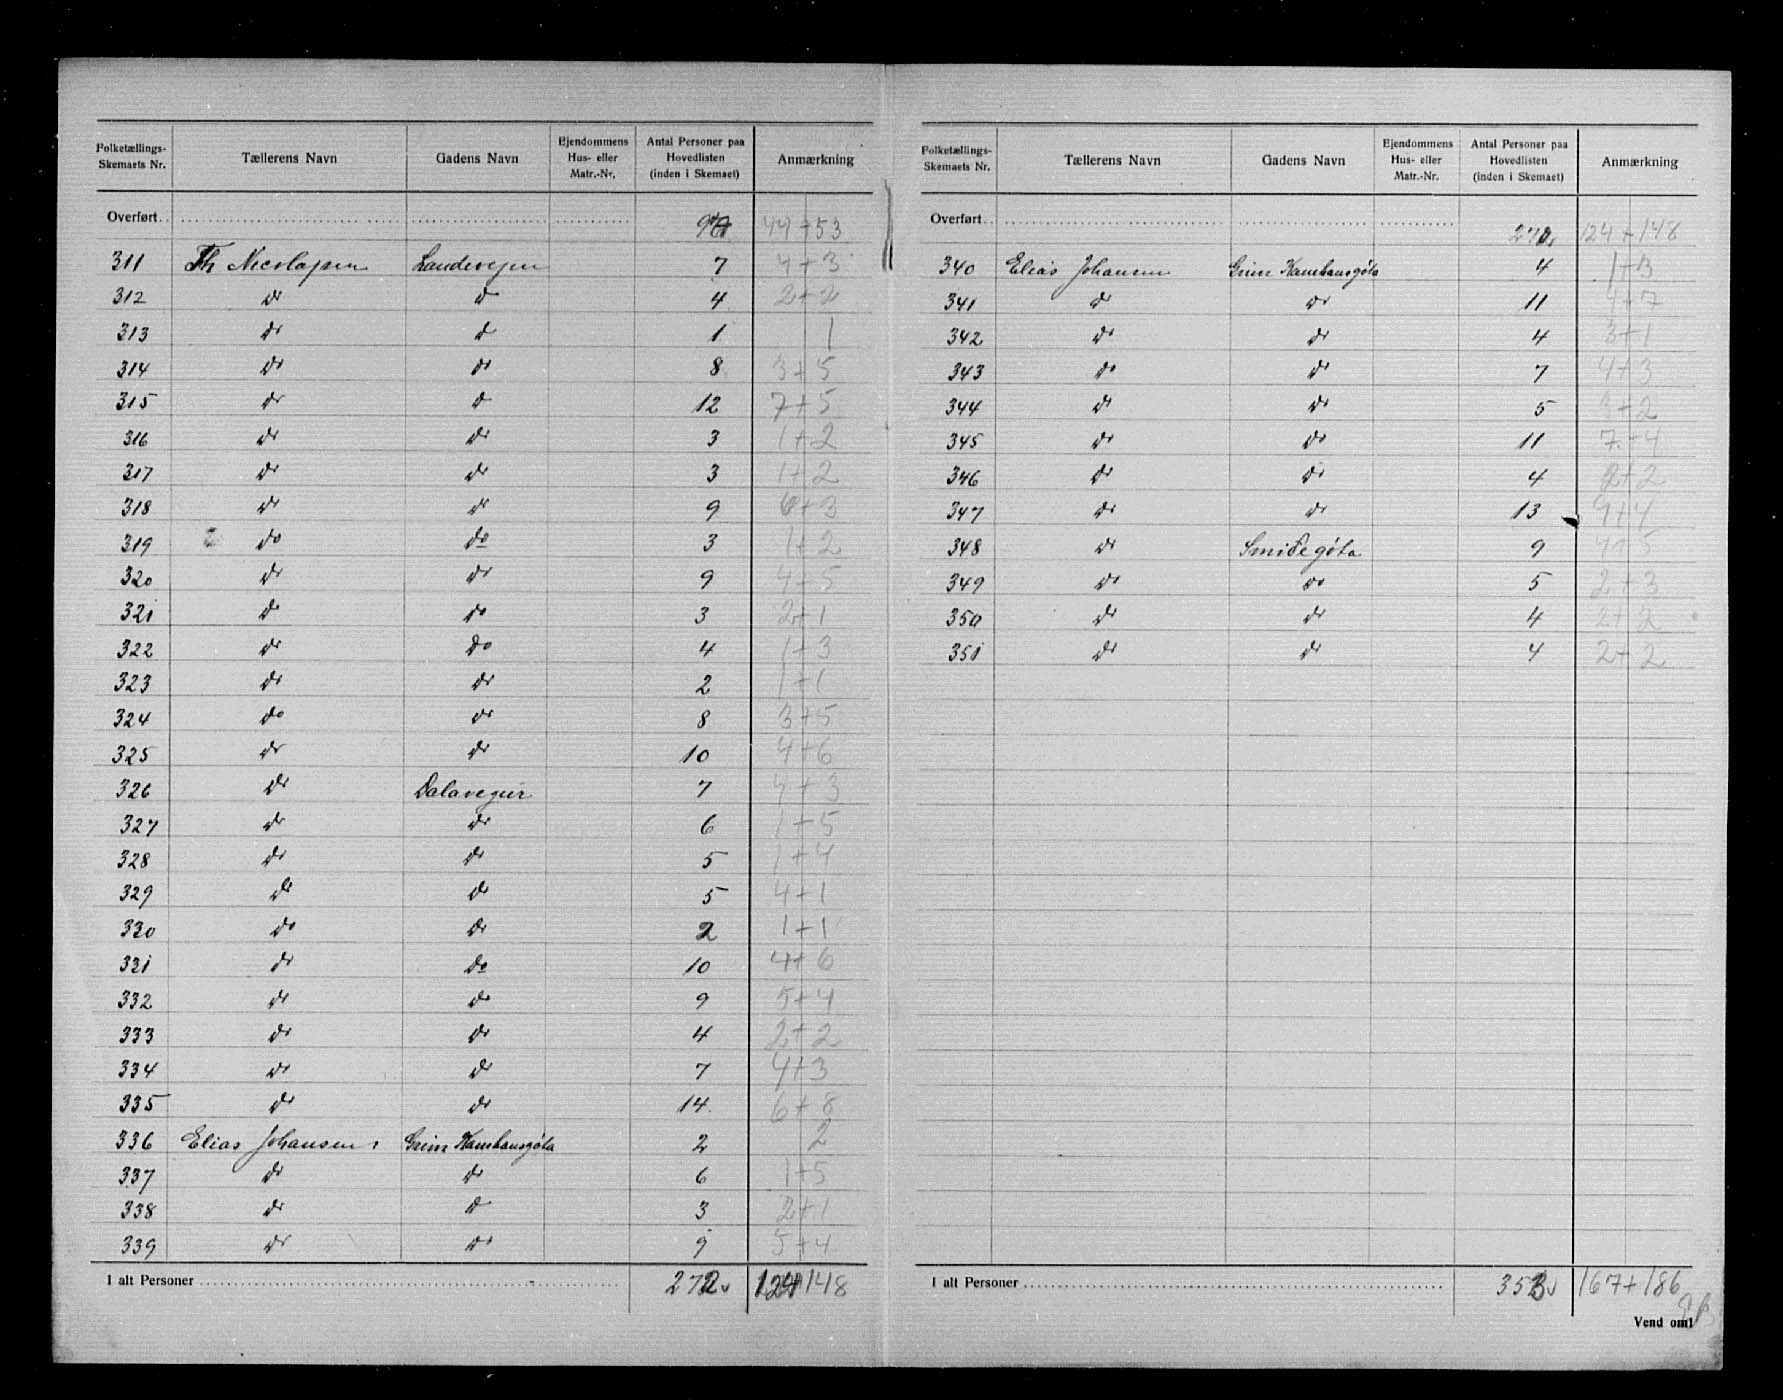 Folketællings-Skemaets Nr. Tællerens Navn Gadens Navn Ejendommens Hus- eller Matr.-Nr. Antal Personer paa Hovedlisten (inden i Skemaet) Anmærkning
Overført 44+53
311 Th Nicolajsen Landevejen 7 4+3
312 do do 4 2+2
313 do do 1 1
314 do do 8 3+5
315 do do 12 7+5
316 do do 3 1+2
317 do do 3 1+2
318 do do 9 6+3
319 do do 3 1+2
320 do do 9 4+5
321 do do 3 2+1
322 do do 4 1+3
323 do do 2 1+1
324 do do 8 3+5
325 do do 10 4+6
326 do Dalavegur 7 4+3
327 do do 6 1+5
328 do do 5 1+4
329 do do 5 4+1
330 do do 2 1+1
331 do do 10 4+6
332 do do 9 5+4
333 do do 4 2+2
334 do do 7 4+3
335 do do 14 6+8
336 Elias Johansen Grim Kambansgóta 2 2
337 do do 6 1+5
338 do do 3 2+1
339 do do 9 5+4
I alt Personer 272 124+148
Folketællings-Skemaets Nr. Tællerens Navn Gadens Navn Ejendommens Hus- eller Matr.-Nr. Antal Personer paa Hovedlisten (inden i Skemaet) Anmærkning
Overført 272 124+148
340 Elias Johansen Grim Kambansgóta 4 1+3
341 do do 11 4+7
342 do do 4 3+1
343 do do 7 4+3
344 do do 5 +2
345 do do 11 7+4
346 do do 4 2+2
347 do do 13 9+4
348 do Smiðjegóta 9 4+5
349 do do 5 2+3
350 do do 4 2+2
351 do do 4 2+2
I alt Personer 353 167+186
Vend om!